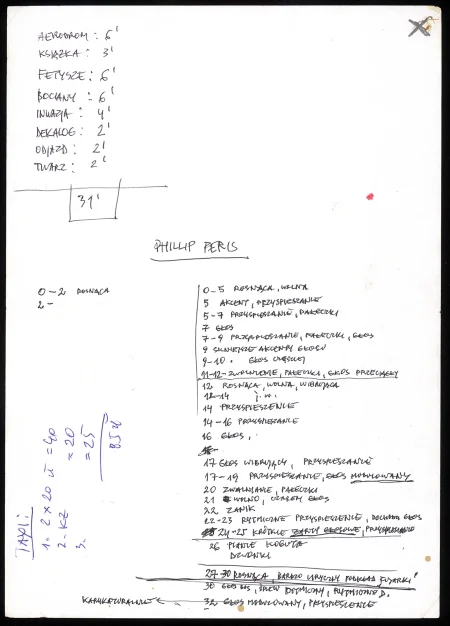 AERODROM : 6'
KSIĄŻKA : 3'
FETYSZE : 6'
BOCIANY : 6'
INWAZJA : 4'
DEKALOG : 2'
ODJAZD : 2'
TWARZ : 2'
31'
PHILLIP PERIS
0-2 ROSNĄCA
2-
0-5 ROSNĄCA, WOLNA
5 AKCENT, PRZYSPIESZANIE
5-7 PRZYSPIESZANIE, PAŁECZKI
7 GŁOS
7-9 PRZYSPIESZANIE, PAŁECZKI, GŁOS
9 SILNIEJSZE AKCENTY GŁOSU
9-10 . GŁOS
11-12 ZWOLNIENIE, PAŁECZKI, GŁOS PRZECIĄGŁY
12 ROSNĄCA, WOLNA, WIBRUJĄCA
12-14 j.w.
14 PRZYSPIESZENIE
14-16 PRZYSPIESZANIE
16 GŁOS,
17 GŁOS WIBRUJĄCY, PRZYSPIESZANIE
17-19 PRZYSPIESZANIE, GŁOS MODULOWANY
20 ZWALNIANIE, PAŁECZKI
21 WOLNO, CZASEM GŁOS
22 ZANIK
22-23 RYTMICZNE PRZYSPIESZENIE, GŁOS
24-25 KRÓTKIE GŁOSOWE, PRZYSPIESZANIE
26 PIANIE KOGUTA
DZWONKI
27-30 ROSNĄCA, BARDZO LIRYCZNY PODKŁAD FUJARKI
30 GŁOS, RYTMICZNE
KARYKATURALNIE
32 GŁOS MODULOWANY, PRZYSPIESZENIE
TAXI:
1. 2 x 20 zł = 40
2. KZ = 20
3. = 25
85 zł